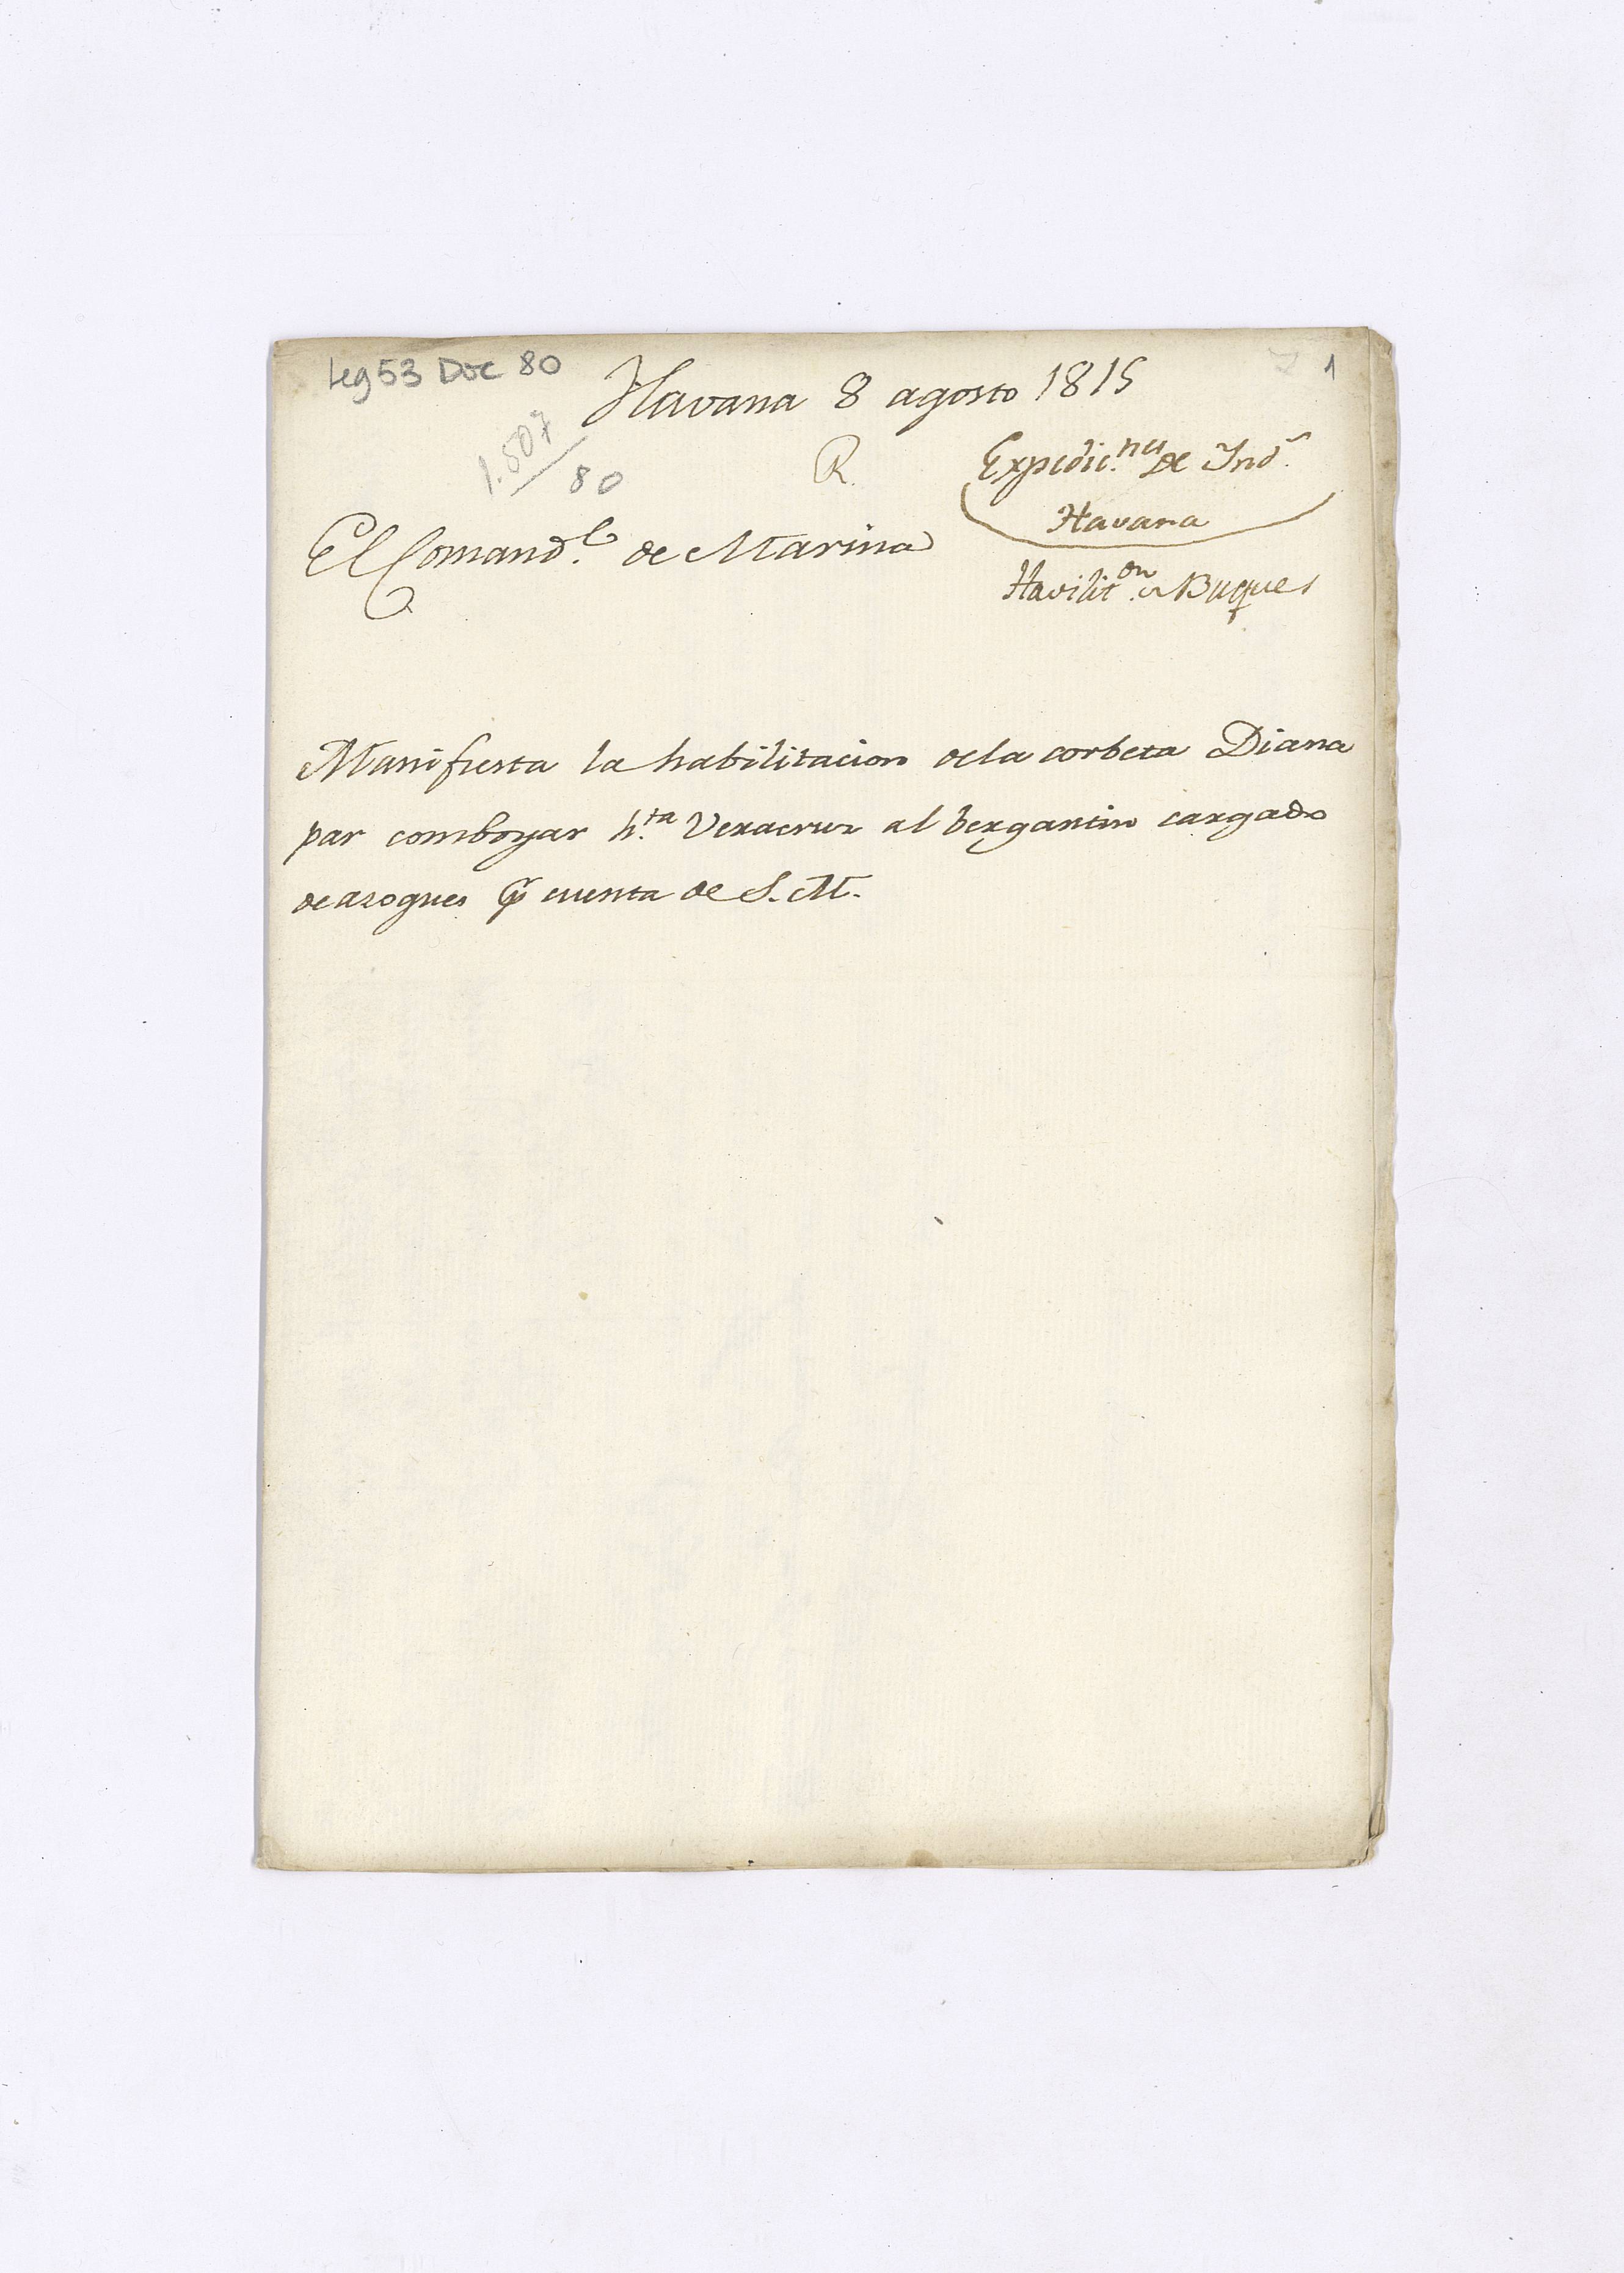 Leg 53 Doc 80
1
Havana 8 agosto 1815
1.507
80
R.
Expedic.nes de Ind.s
Havana
El Comand.te de Marina
Havilit.on de Buques
Manifiesta la habilitacion dela corbeta Diana
par comboyar h.ta Veracruz al bergantin cargado
de azogues pr cuenta de S. M.